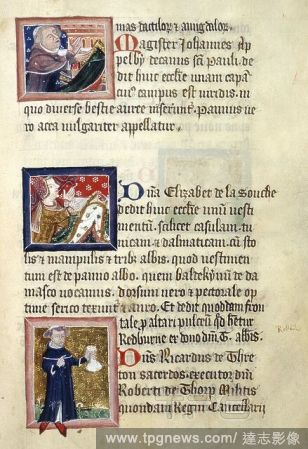 mas tactilox & amigdalox.
Magister Johannes Ap
pelby decanus sci Pauli. de
dit huic ecclie unam capa
cui9 campus est viridis. in
quo diverse bestie auree inserunt. Pannus ve
ro acca vulgariter appellatur.
Dna Elizabet de la Souche
dedit huic ecclie unū vesti
mentū. scilicet casulam. tu
nicam & dalmaticam. cū sto
lis & manipulis & trib albis. quod vestimen
tum est de panno albo. quem baldekynū de da
masco vocamus. dorsum vero & pectorale op
time serico texunt & auro. Et dedit quoddam fron
tale p altari pulcrū qd hetur
Redburne ex dono dni T. abbis.
Dns Ricardus de Thre
ton sacerdos. executor dni
Roberti de Thorp Militis
quondam Regni Cancellarii
www.tpgnews.com/達志影像